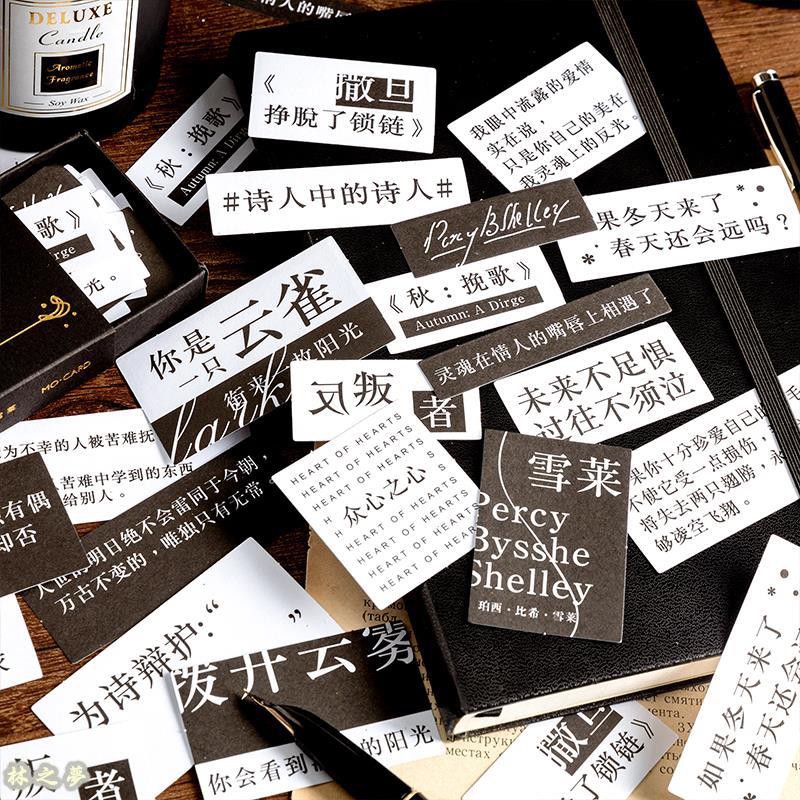 DELUXE
Candle
Aromatic
Fragrance
Soy Wax
情人的嘴唇
《
撒旦
挣脱了锁链》
我眼中流露的爱情
实在说，
只是你自己的美在
我灵魂上的反光。
《秋：挽歌》
Autumn: A Dirge
#诗人中的诗人#
PercyBShelley
果冬天来了
春天还会远吗？
歌》
Dirge
光。
MO·CARD
《秋：挽歌》
Autumn: A Dirge
你是
一只云雀
衔来
放阳光
lark
灵魂在情人的嘴唇上相遇了
反叛
者
未来不足惧
过往不须泣
HEART OF HEARTS
HEART OF HEARTS
HEART OF HEARTS
众心之心
HEART OF HEARTS
HEART OF HEARTS
HEART OF HEARTS
HEART OF HEARTS
雪莱
Percy
Bysshe
Shelley
珀西·比希·雪莱
果你十分珍爱自己的
不使它受一点损伤，
将失去两只翅膀，永
够凌空飞翔。
为不幸的人被苦难抚
苦难中学到的东西
给别人。
有偶
却否
人世的明日绝不会雷同于今朝，
万古不变的，唯独只有无常。
为诗辩护：“
”
拨开云雾
你会看到
的阳光
叛
者
撒旦
了锁链》
如果冬天来了
春天还会
林之夢